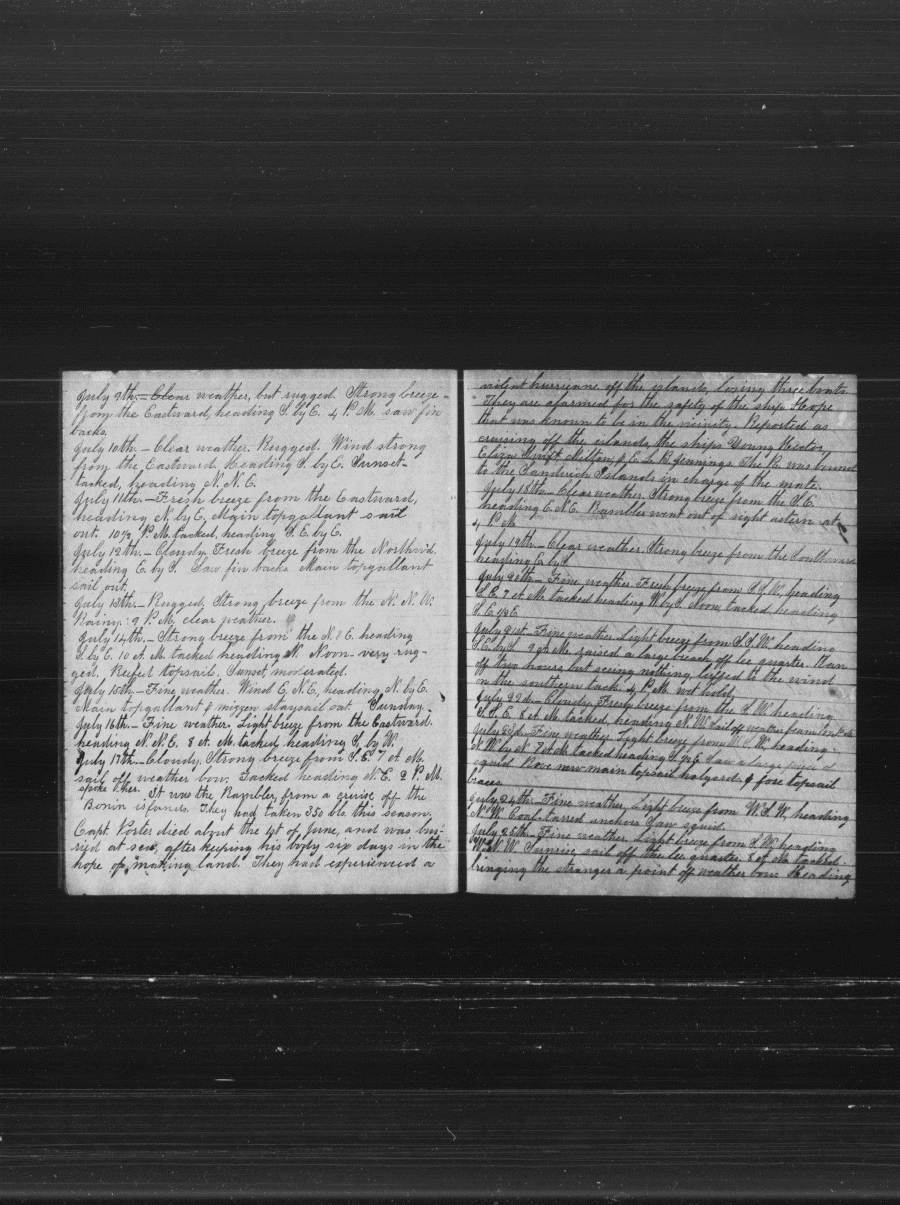 July 9th.— Clear weather, but rugged. Strong breeze
from the Eastward, heading S. by E. 4 P. M. saw fin
backs.
July 10th.— Clear weather. Rugged. Wind strong
from the Eastward. Heading S. by E. Sunset—
tacked, heading N. N. E.
July 11th.— Fresh breeze from the Eastward,
heading N. by E. Main topgallant sail
out. 10½ P. M. tacked, heading S. E. by E.
July 12th.— Cloudy. Fresh breeze from the Northw'd.
heading E. by S. Saw fin backs. Main topgallant
sail out.
July 13th.— Rugged. Strong breeze from the N. N. W.
Rainy: 9 P. M. clear weather.
July 14th.— Strong breeze from the N. E. heading
S. by E. 10 A. M. tacked heading N. Noon— very rug-
ged. Reefed topsail. Sunset, moderated.
July 15th.— Fine weather. Wind E. N. E. heading N. by E.
Main topgallant & mizzen staysail out. Sunday.
July 16th.— Fine weather. Light breeze from the Eastward.
heading N. N. E. 8 A. M. tacked heading S. by W.
July 17th.— Cloudy. Strong breeze from S. E. 7 A. M.
sail off weather bow. Tacked heading N. E. 2 P. M.
spoke her. It was the Rambler, from a cruise off the
Bonin islands. They had taken 350 bls this season.
Capt. Porter died about the 1st of June, and was bu-
ried at sea, after keeping his body six days in the
hope of making land. They had experienced a
violent hurricane off the islands, losing three boats.
They are alarmed for the safety of the ship Hope
that was known to be in the vicinity. Reported as
cruising off the islands, the ships Young Hector,
Eliza Swift, Milton, & E. L. B. Jennings. The R. was bound
to the Sandwich Islands in charge of the mate.
July 18th.— Clear weather. Strong breeze from the S. E.
heading E. N. E. Rambler went out of sight astern at
4 P. M.
July 19th.— Clear weather. Strong breeze from the Southward
heading E. by S.
July 20th.— Fine weather. Fresh breeze from S. S. W. heading
S. E. 7 A. M. tacked heading W. by S. Noon, tacked heading
S. E. ½ E.
July 21st.— Fine weather. Light breeze from S. S. W. heading
S. E. by S. 9 A. M. raised a large breach off lee quarter. Ran
off two hours but seeing nothing luffed to the wind
on the southern tack. 4 P. M. wet hold.
July 22d.— Cloudy. Fresh breeze from the S. W. heading
S. S. E. 8 A. M. tacked, heading N. W. Sail off weather beam
July 23d.— Fine weather. Light breeze from W. S. W. heading
N. W. by N. 7 A. M. tacked heading S. by E. Saw a large piece of
squid. Rove new main topsail halyards & fore topsail
braces.
July 24th.— Fine weather. Light breeze from W. S. W. heading
N. W. Coal-tarred anchors. Saw squid.
July 25th.— Fine weather. Light breeze from S. W. heading
W. N. W. Sunrise, sail off the lee quarter. 8 A. M. tacked
bringing the stranger a point off weather bow. Heading